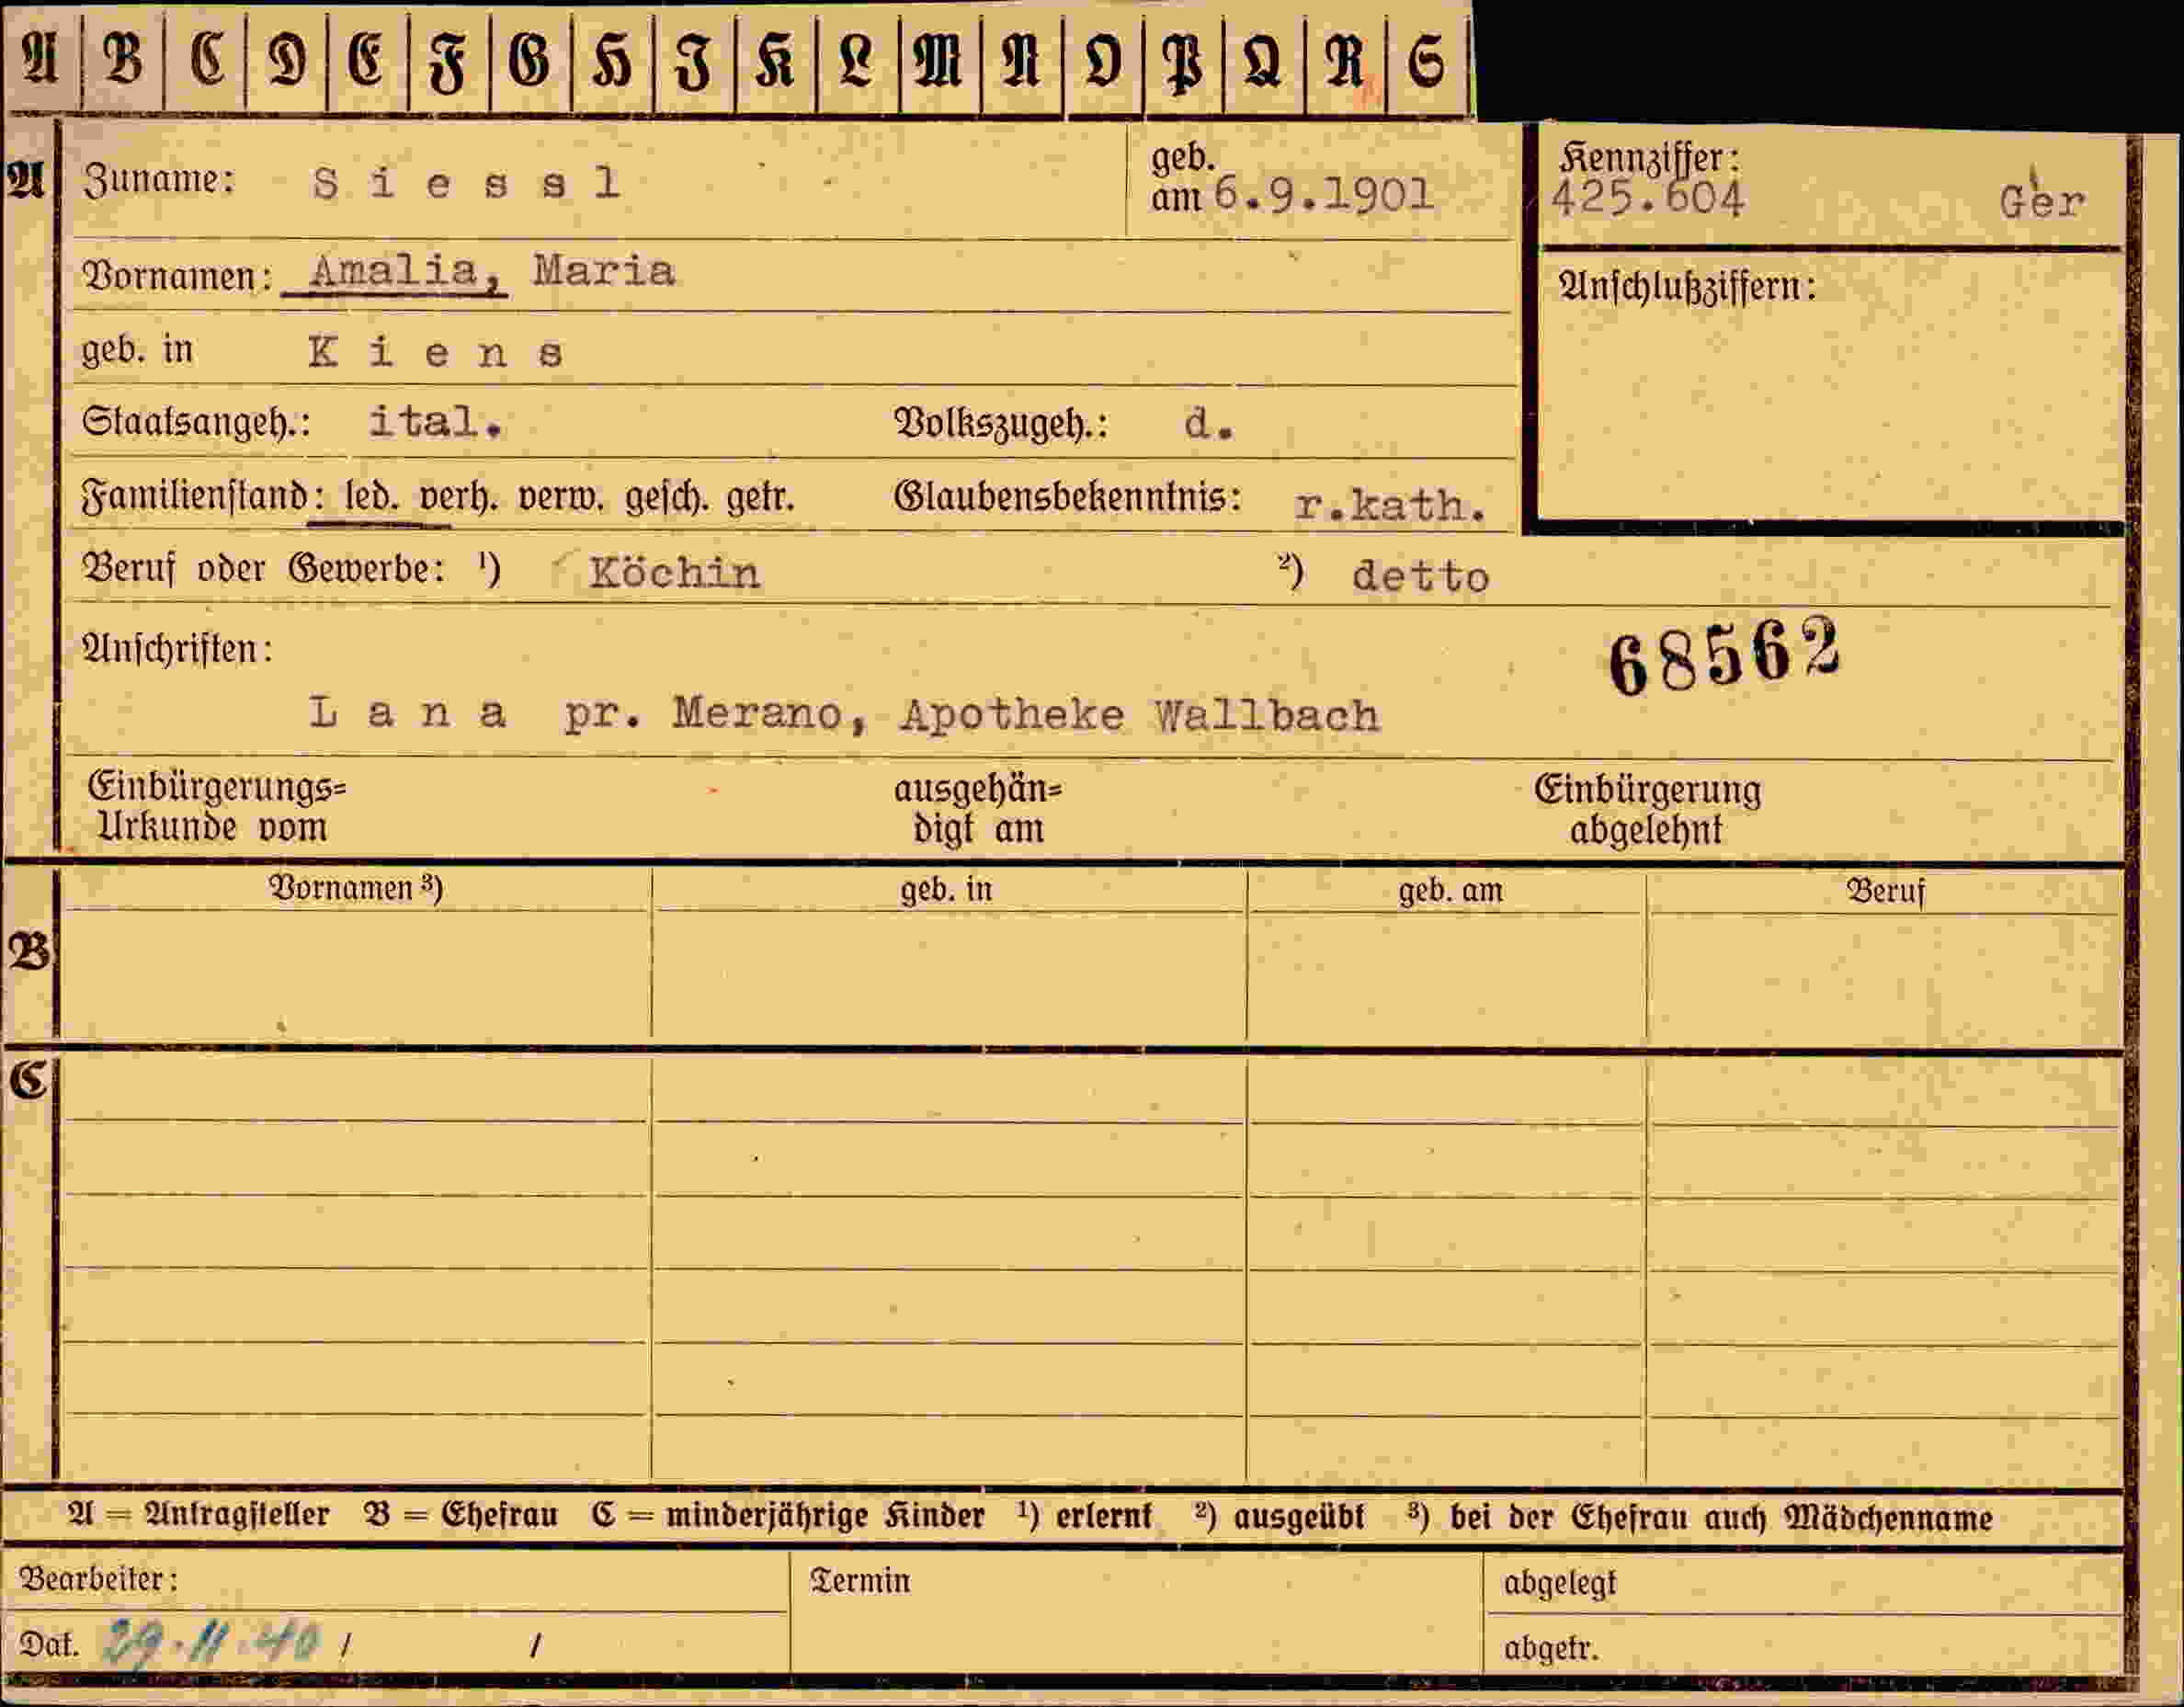 A B C D E F G H I K L M N O P Q R S
A Zuname: Siessl geb. am 6.9.1901 Kennziffer: 425.604 Ger
Vornamen: Amalia, Maria Anschlußziffern:
geb. in Kiens
Staatsangeh.: ital. Volkszugeh.: d.
Familienstand: led. verh. verw. gesch. getr. Glaubensbekenntnis: r.kath.
Beruf oder Gewerbe: ¹) Köchin ²) detto
Anschriften: 68562
Lana pr. Merano, Apotheke Wallbach
Einbürgerungs= ausgehän= Einbürgerung
Urkunde vom digt am abgelehnt
Vornamen ³) geb. in geb. am Beruf
B
C
A = Antragsteller B = Ehefrau C = minderjährige Kinder ¹) erlernt ²) ausgeübt ³) bei der Ehefrau auch Mädchenname
Bearbeiter: Termin abgelegt
Dat. 29.11.40 / / abgetr.